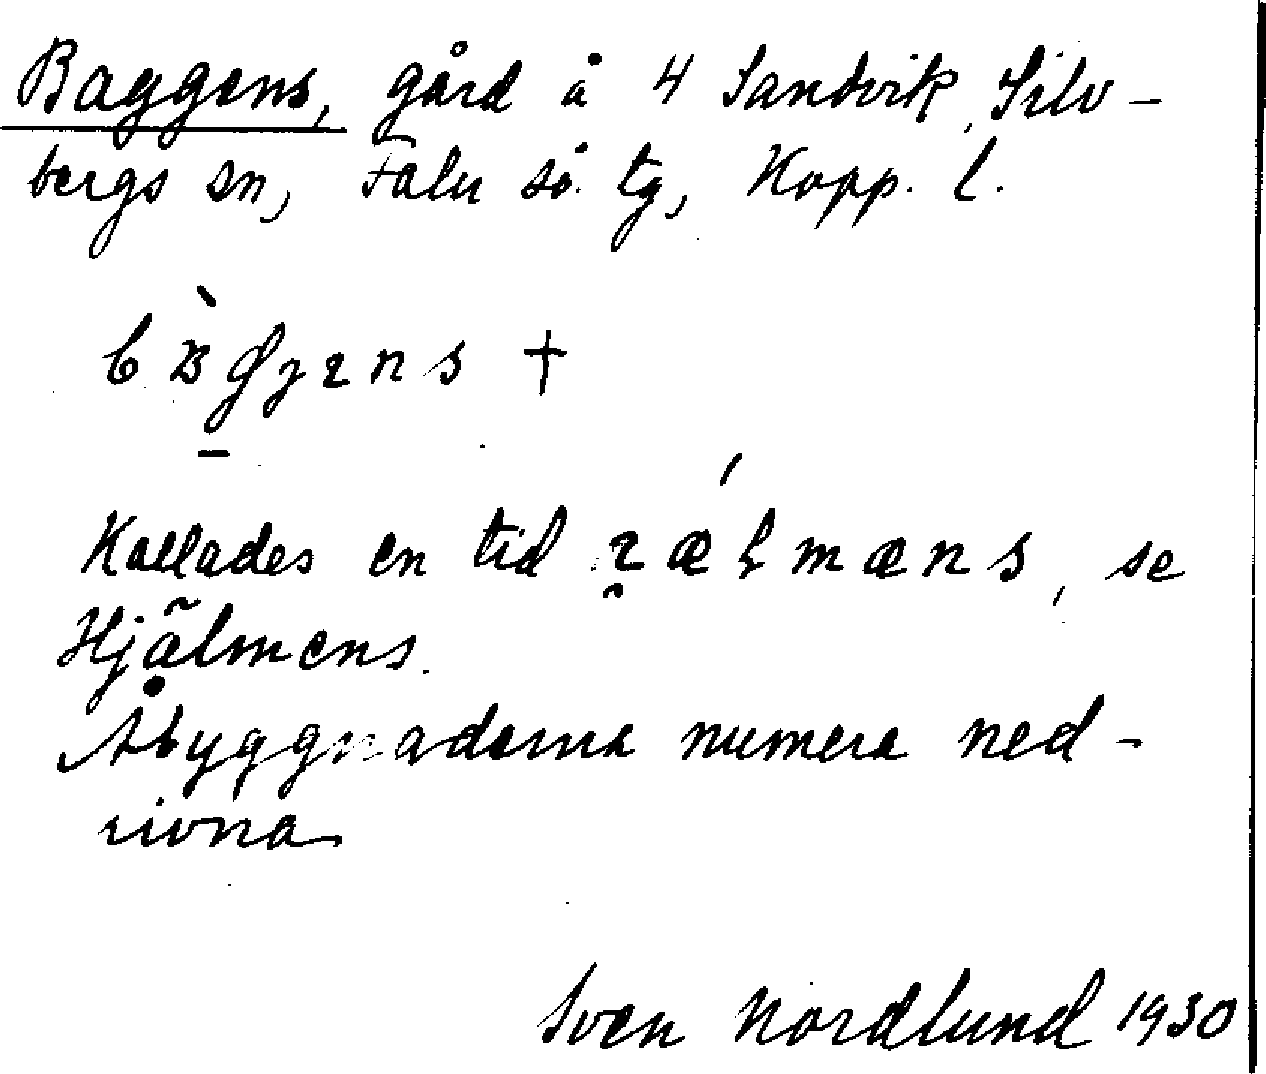 Baggens, gård å 4 Sandvik, Silv-
bergs sn, Falu sö. tg, Kopp. l.
†
Kallades en tid mæns, se
Hjälmens.
Åbyggnaderna numera ned-
rivna
Sven Nordlund 1930